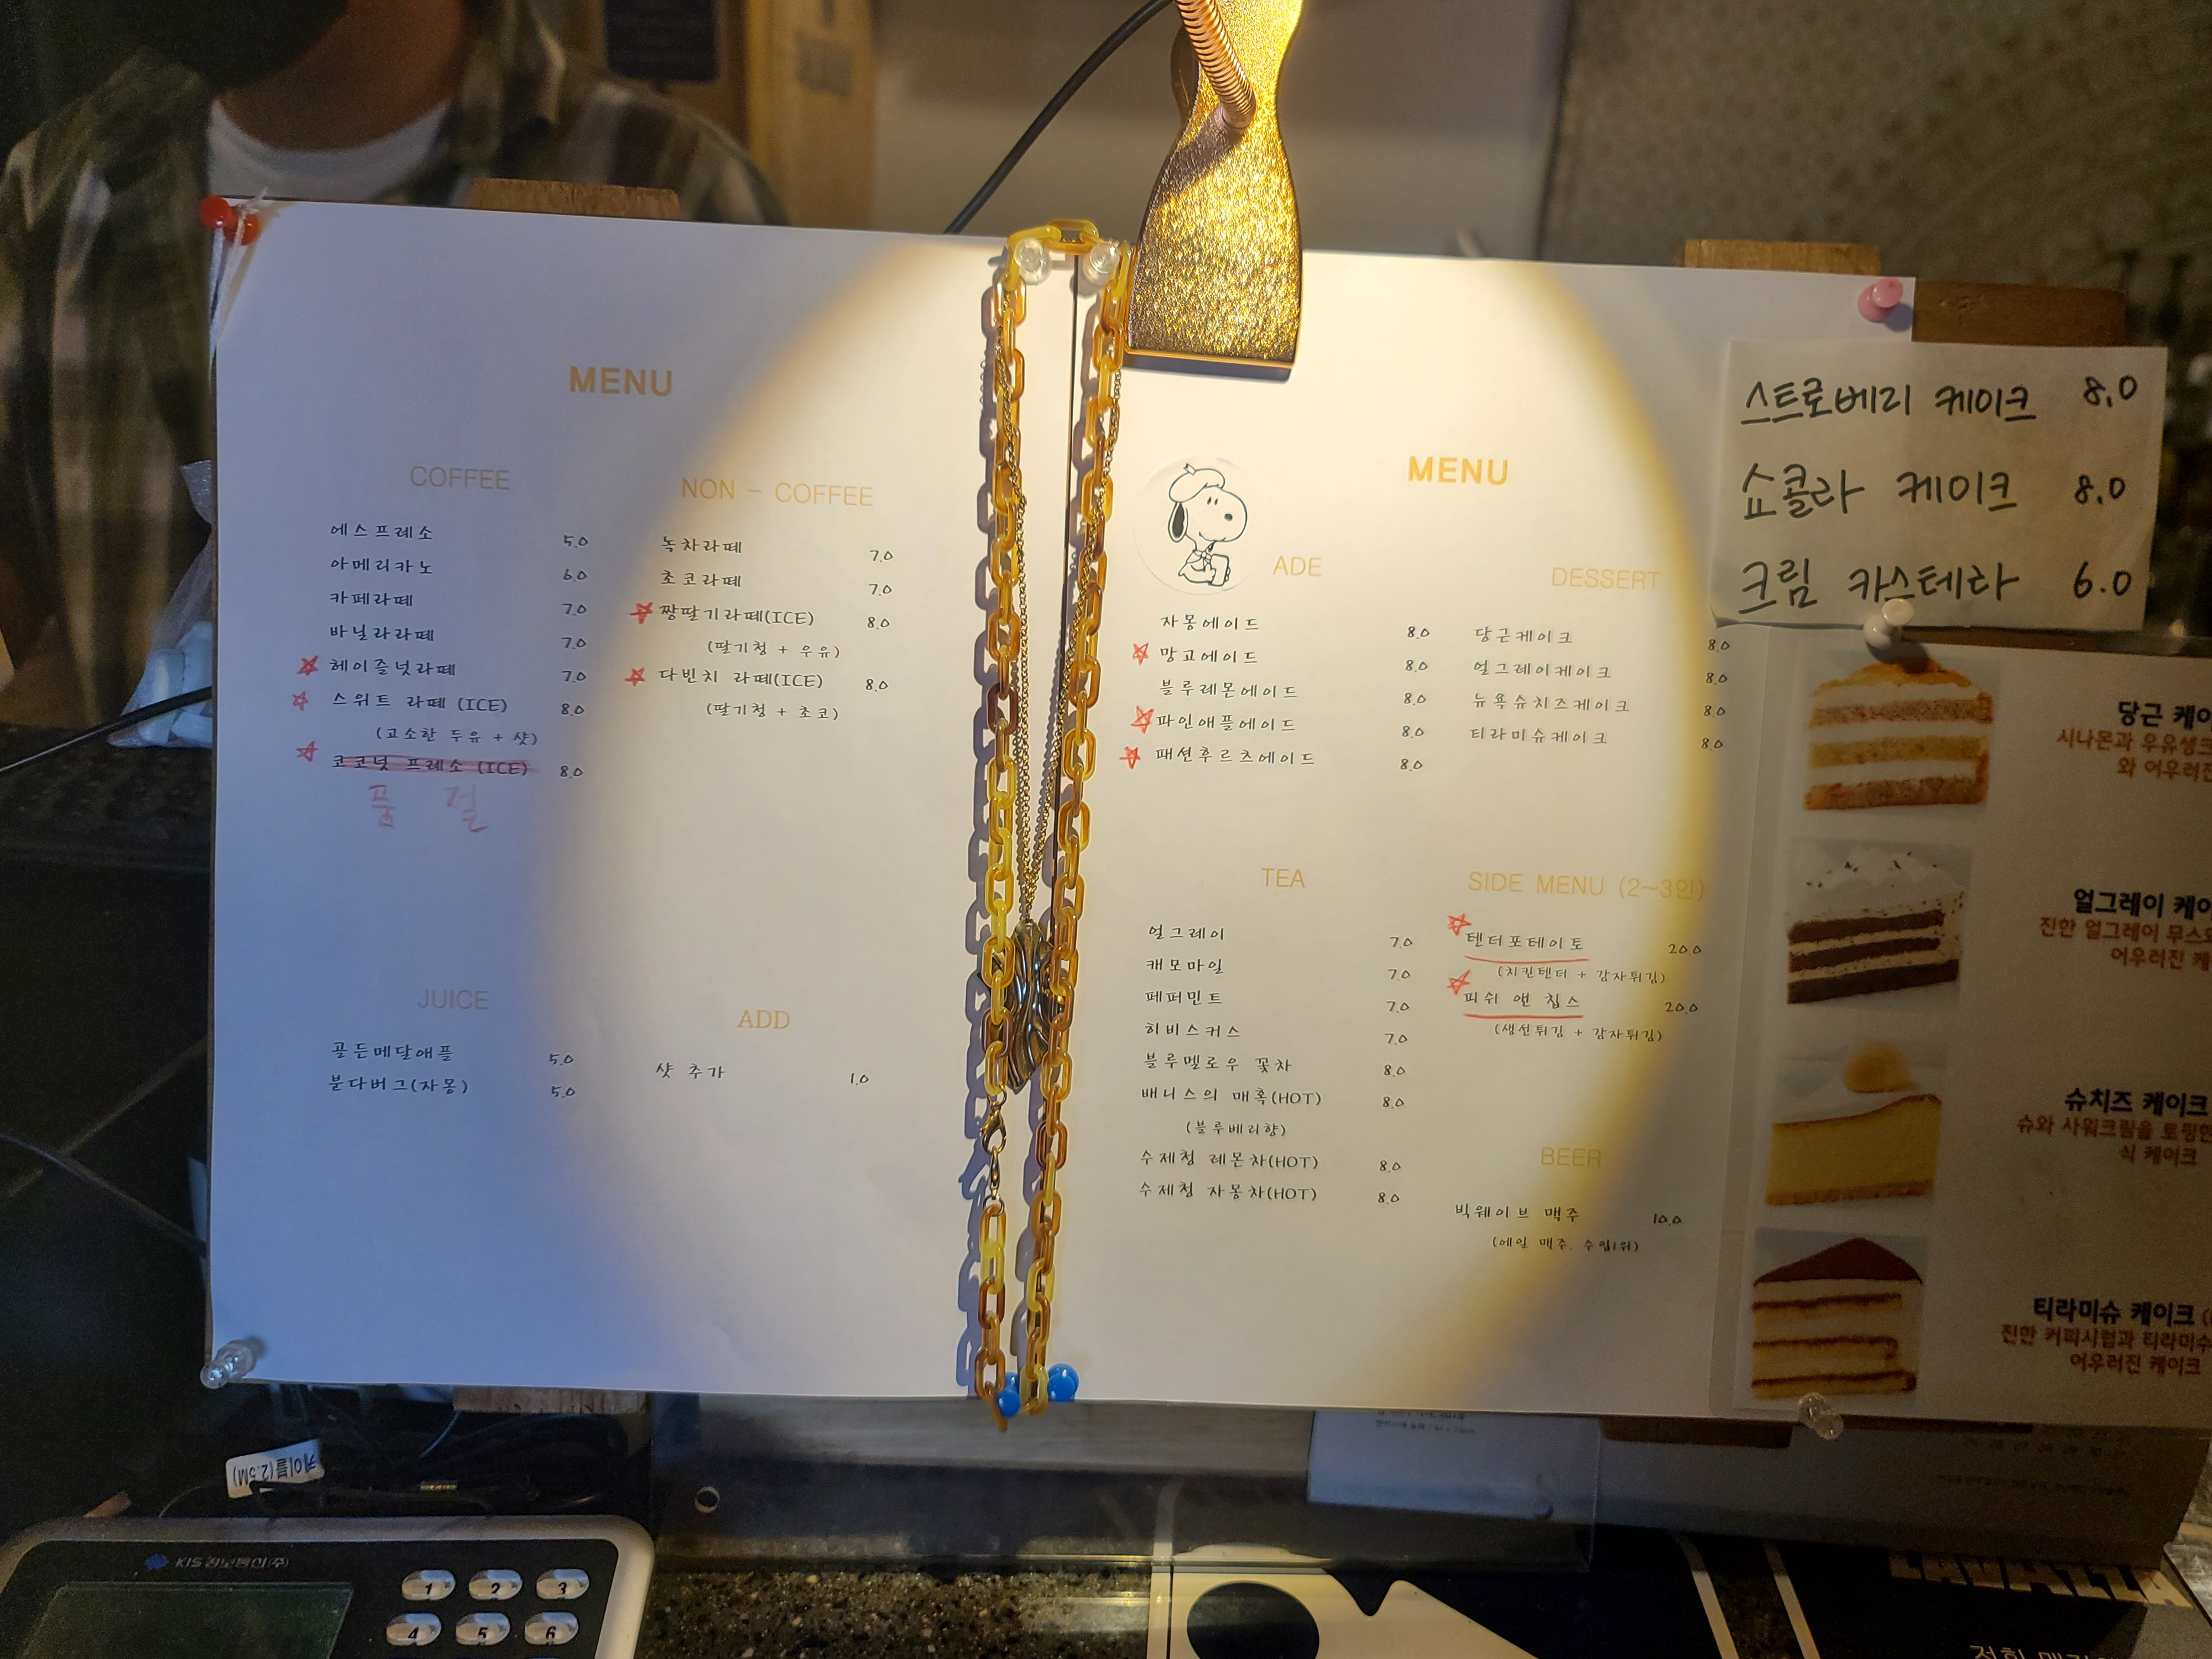 MENU
COFFEE
에스프레소 5.0
아메리카노 6.0
카페라떼 7.0
바닐라라떼 7.0
헤이즐넛라떼 7.0
스위트 라떼 (ICE) 8.0
(고소한 두유 + 샷)
코코넛 프레소 (ICE) 8.0
품 절
NON - COFFEE
녹차라떼 7.0
초코라떼 7.0
짱딸기라떼(ICE) 8.0
(딸기청 + 우유)
다빈치 라떼(ICE) 8.0
(딸기청 + 초코)
JUICE
골든메달애플 5.0
분다버그(자몽) 5.0
ADD
샷 추가 1.0
MENU
ADE
자몽에이드 8.0
망고에이드 8.0
블루레몬에이드 8.0
파인애플에이드 8.0
패션후르츠에이드 8.0
DESSERT
당근케이크 8.0
얼그레이케이크 8.0
뉴욕슈치즈케이크 8.0
티라미슈케이크 8.0
TEA
얼그레이 7.0
캐모마일 7.0
페퍼민트 7.0
히비스커스 7.0
블루멜로우 꽃차 8.0
배니스의 매혹(HOT) 8.0
(블루베리향)
수제청 레몬차(HOT) 8.0
수제청 자몽차(HOT) 8.0
SIDE MENU (2~3인)
텐더포테이토 20.0
(치킨텐더 + 감자튀김)
피쉬 앤 칩스 20.0
(생선튀김 + 감자튀김)
BEER
빅웨이브 맥주 10.0
(에일 맥주. 수입1위)
스트로베리 케이크 8.0
쇼콜라 케이크 8.0
크림 카스테라 6.0
당근 케이
시나몬과 우유생크
와 어우러진
얼그레이 케이
진한 얼그레이 무스와
어우러진 케
슈치즈 케이크
슈와 사워크림을 토핑한
식 케이크
티라미슈 케이크 (
진한 커피시럽과 티라미수
어우러진 케이크
케이블(2.5M)
KIS정보통신(주)
1 2 3
4 5 6
LAVAZZA